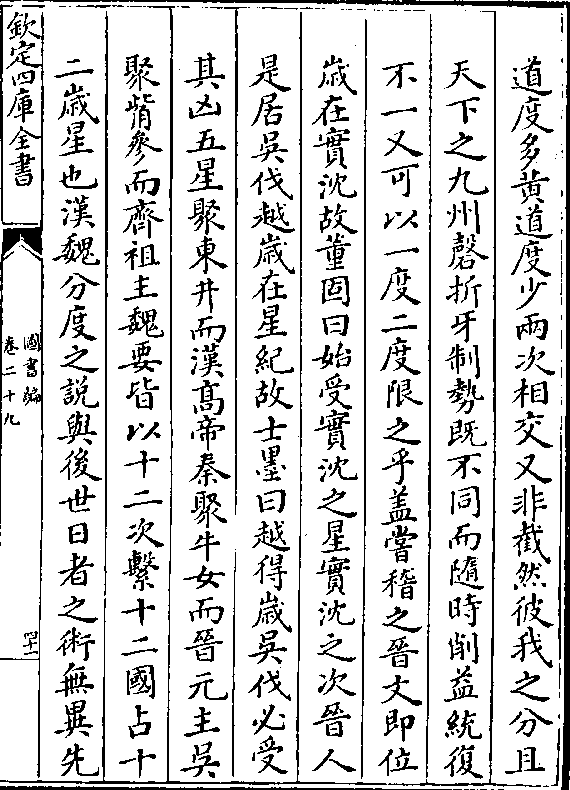 道度多黄道度少兩次相交又非截然彼我之分且
天下之九州磬折牙制勢既不同而隨時削益統復
不一又可以一度二度限之乎盖嘗稽之晉文即位
歳在實沈故董因曰始受實沈之星實沈之次晉人
是居吳伐越歳在星紀故士墨曰越得歳吳伐必受
其凶五星聚東井而漢髙帝秦聚牛女而晉元主吳
聚觜參而齊祖主魏要皆以十二次繫十二國占十
二歳星也漢魏分度之説與後世日者之術無異先
欽定四庫全書
圖書編
卷二十九
四十一